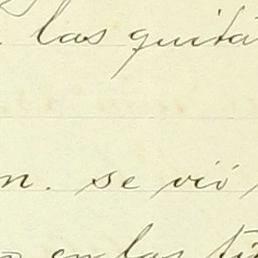 las quita
n. se vió
en las